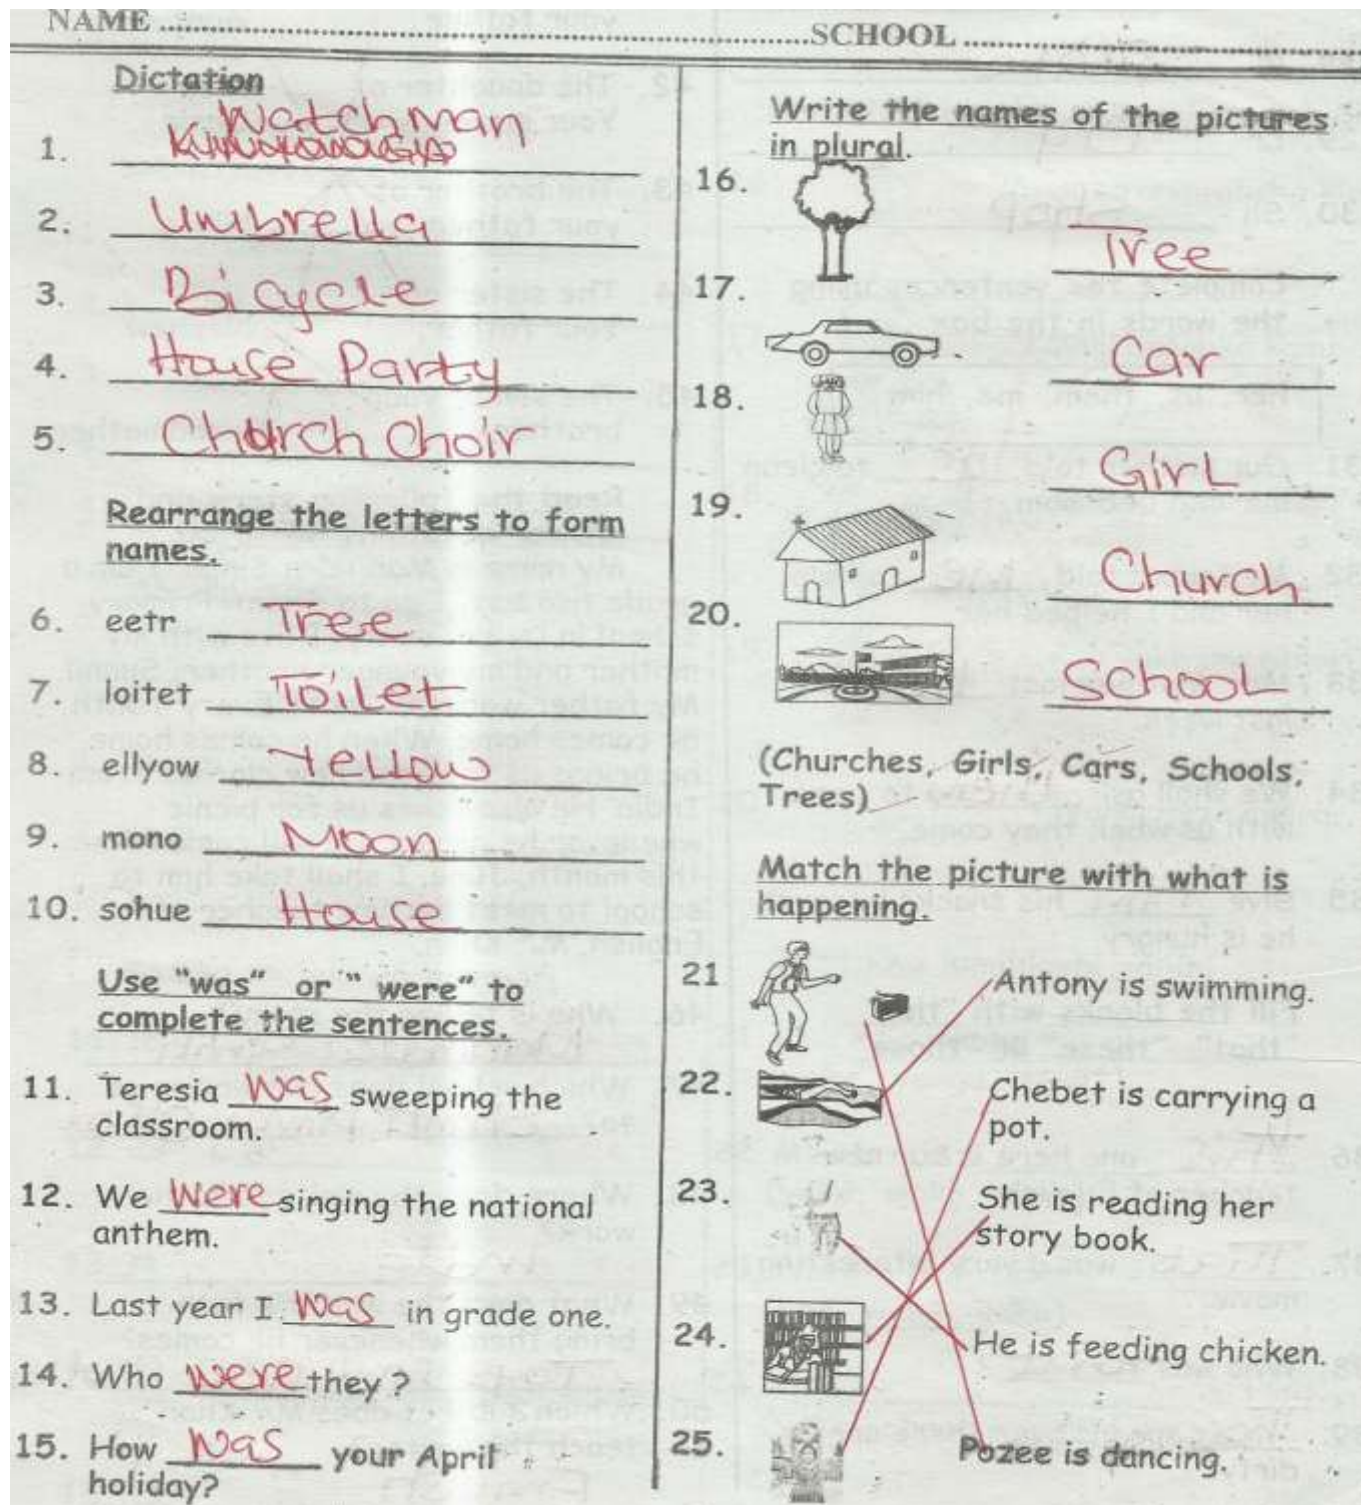 NAME ........ SCHOOL ........
Dictation
1. Watchman
2. Umbrella
3. Bicycle
4. House Party
5. Church Choir
Rearrange the letters to form
names.
6. eetr Tree
7. loitet Toilet
8. ellyow Yellow
9. mono Moon
10. sohue House
Use "was" or "were" to
complete the sentences.
11. Teresia was sweeping the
classroom.
12. We were singing the national
anthem.
13. Last year I was in grade one.
14. Who were they ?
15. How was your April
holiday?
Write the names of the pictures
in plural.
16. Tree
17. Car
18. Girl
19. Church
20. School
(Churches, Girls, Cars, Schools,
Trees)
Match the picture with what is
happening.
21 Antony is swimming.
22. Chebet is carrying a
pot.
23. She is reading her
story book.
24. He is feeding chicken.
25. Pozee is dancing.